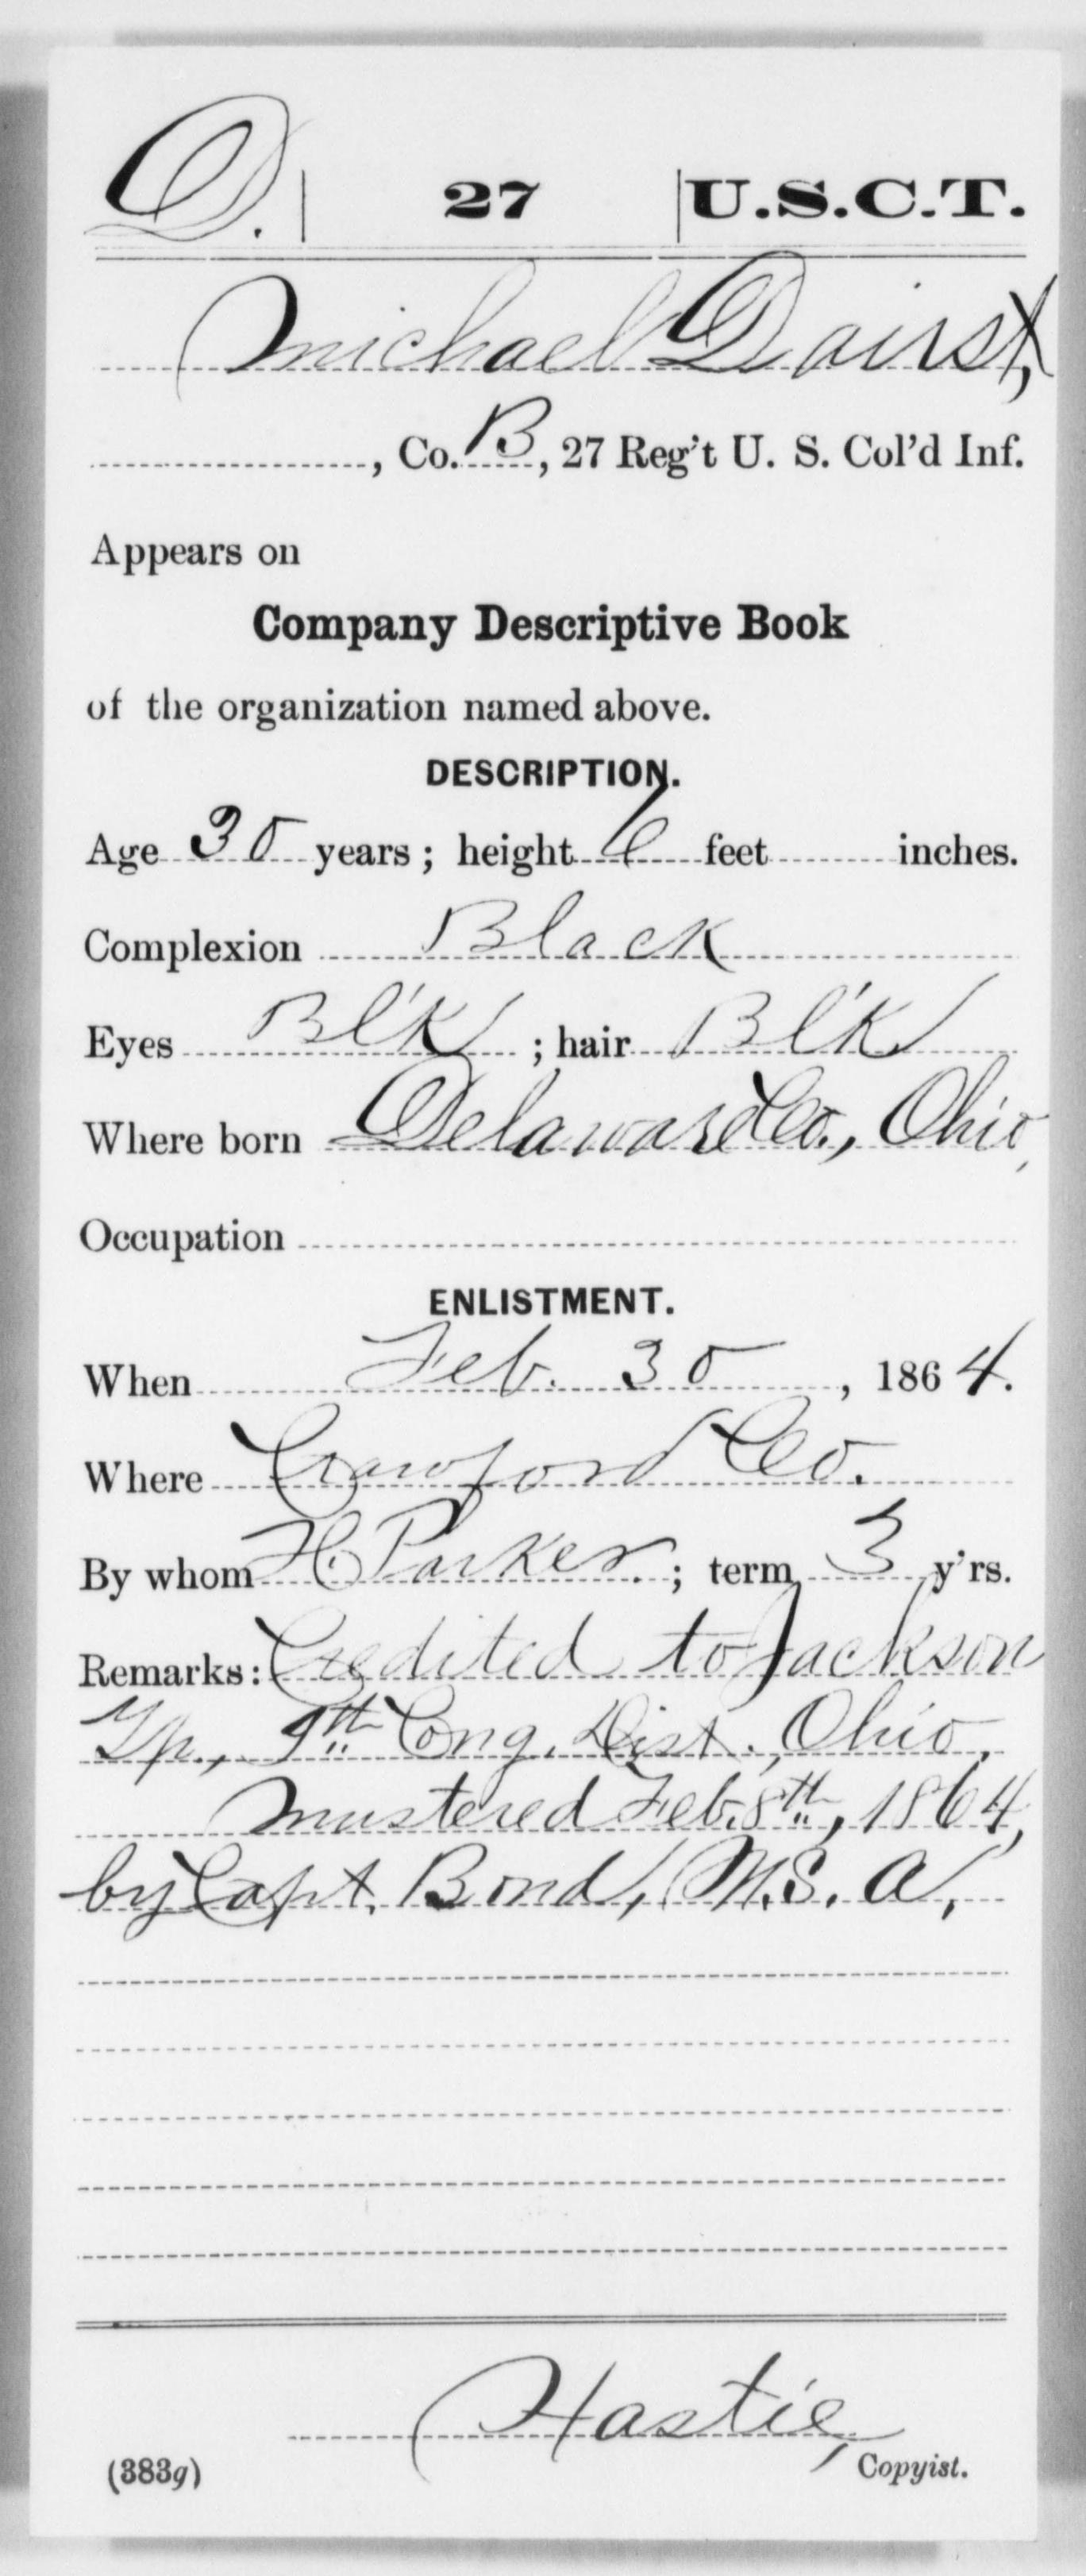 D. 27 U.S.C.T.
Michael Dairst,
, Co. B, 27 Reg't U. S. Col'd Inf.
Appears on
Company Descriptive Book
of the organization named above.
DESCRIPTION.
Age 30 years; height 6 feet inches.
Complexion Black
Eyes Bl'k; hair Bl'k
Where born Delaware Co., Ohio,
Occupation
ENLISTMENT.
When Feb. 30, 1864.
Where Crawford Co.
By whom H. Parker.; term 3 y'rs.
Remarks: Credited to Jackson
Tp., 9th Cong. Dist., Ohio,
mustered Feb. 8th, 1864,
by Capt. Bond, M.S. A,
Hastie,
(383g) Copyist.